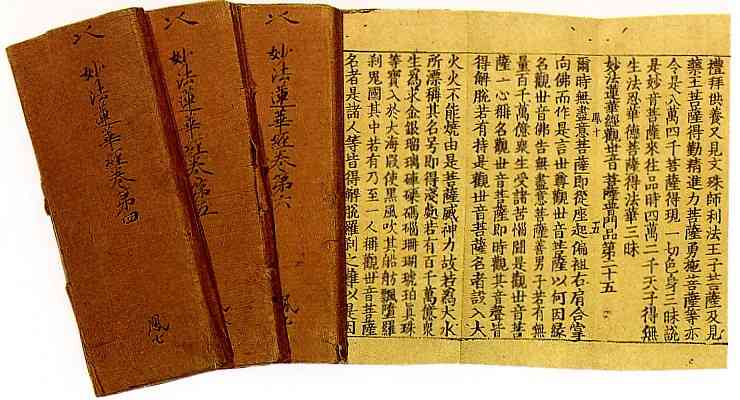 禮拜供養又見文殊師利法王子菩薩及見
藥王菩薩得勤精進力菩薩勇施菩薩等亦
令是八萬四千菩薩得現一切色身三昧說
是妙音菩薩來往品時四萬二千天子得無
生法忍華德菩薩得法華三昧
妙法蓮華經觀世音菩薩普門品第二十五
鳳十 五
爾時無盡意菩薩即從座起偏袒右肩合掌
向佛而作是言世尊觀世音菩薩以何因緣
名觀世音佛告無盡意菩薩善男子若有無
量百千萬億衆生受諸苦惱聞是觀世音菩
薩一心稱名觀世音菩薩即時觀其音聲皆
得解脫若有持是觀世音菩薩名者設入大
火火不能燒由是菩薩威神力故若爲大水
所漂稱其名号即得淺處若有百千萬億衆
生爲求金銀瑠璃硨磲碼碯珊瑚琥珀真珠
等寶入於大海假使黑風吹其船舫飄墮羅
刹鬼國其中若有乃至一人稱觀世音菩薩
名者是諸人等皆得解脫羅刹之難以是因
妙法蓮華經卷第六
鳳七
妙法蓮華經卷第五
妙法蓮華經卷第四
鳳七